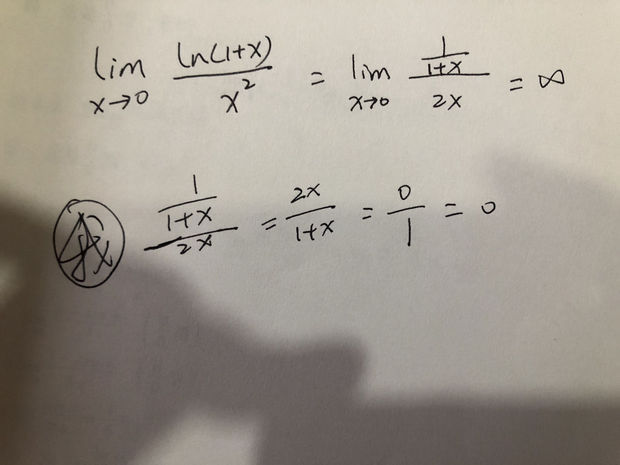 lim x→0 ln(1+x)/x² = lim x→0 (1/(1+x))/(2x) = ∞
我 (1/(1+x))/(2x) = 2x/(1+x) = 0/1 = 0